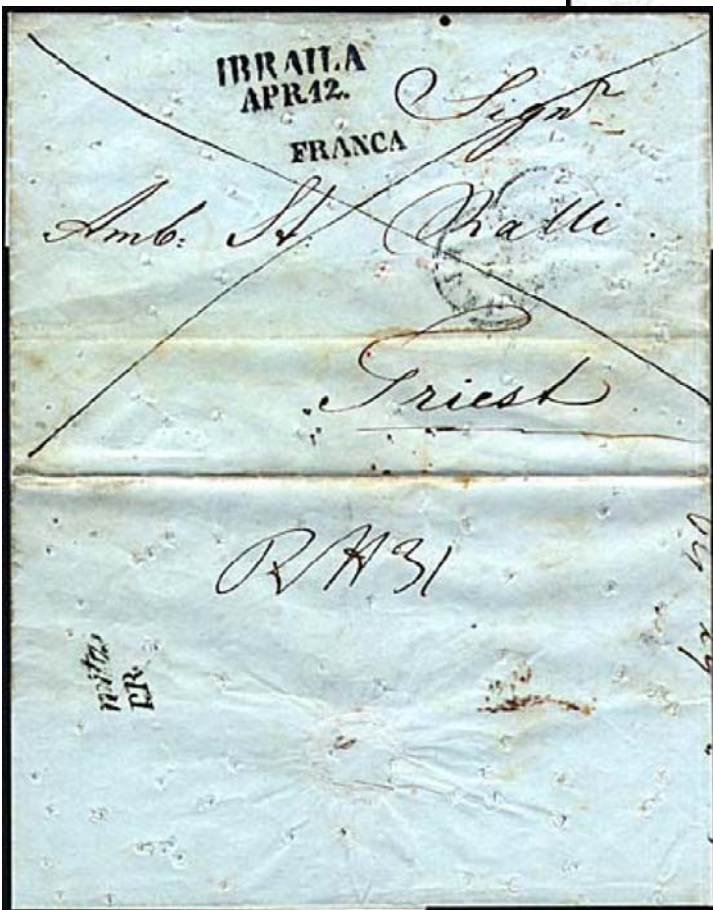 IBRAILA
APR.12.
FRANCA
Signr
Amb: St. Ralli
Triest
RH31